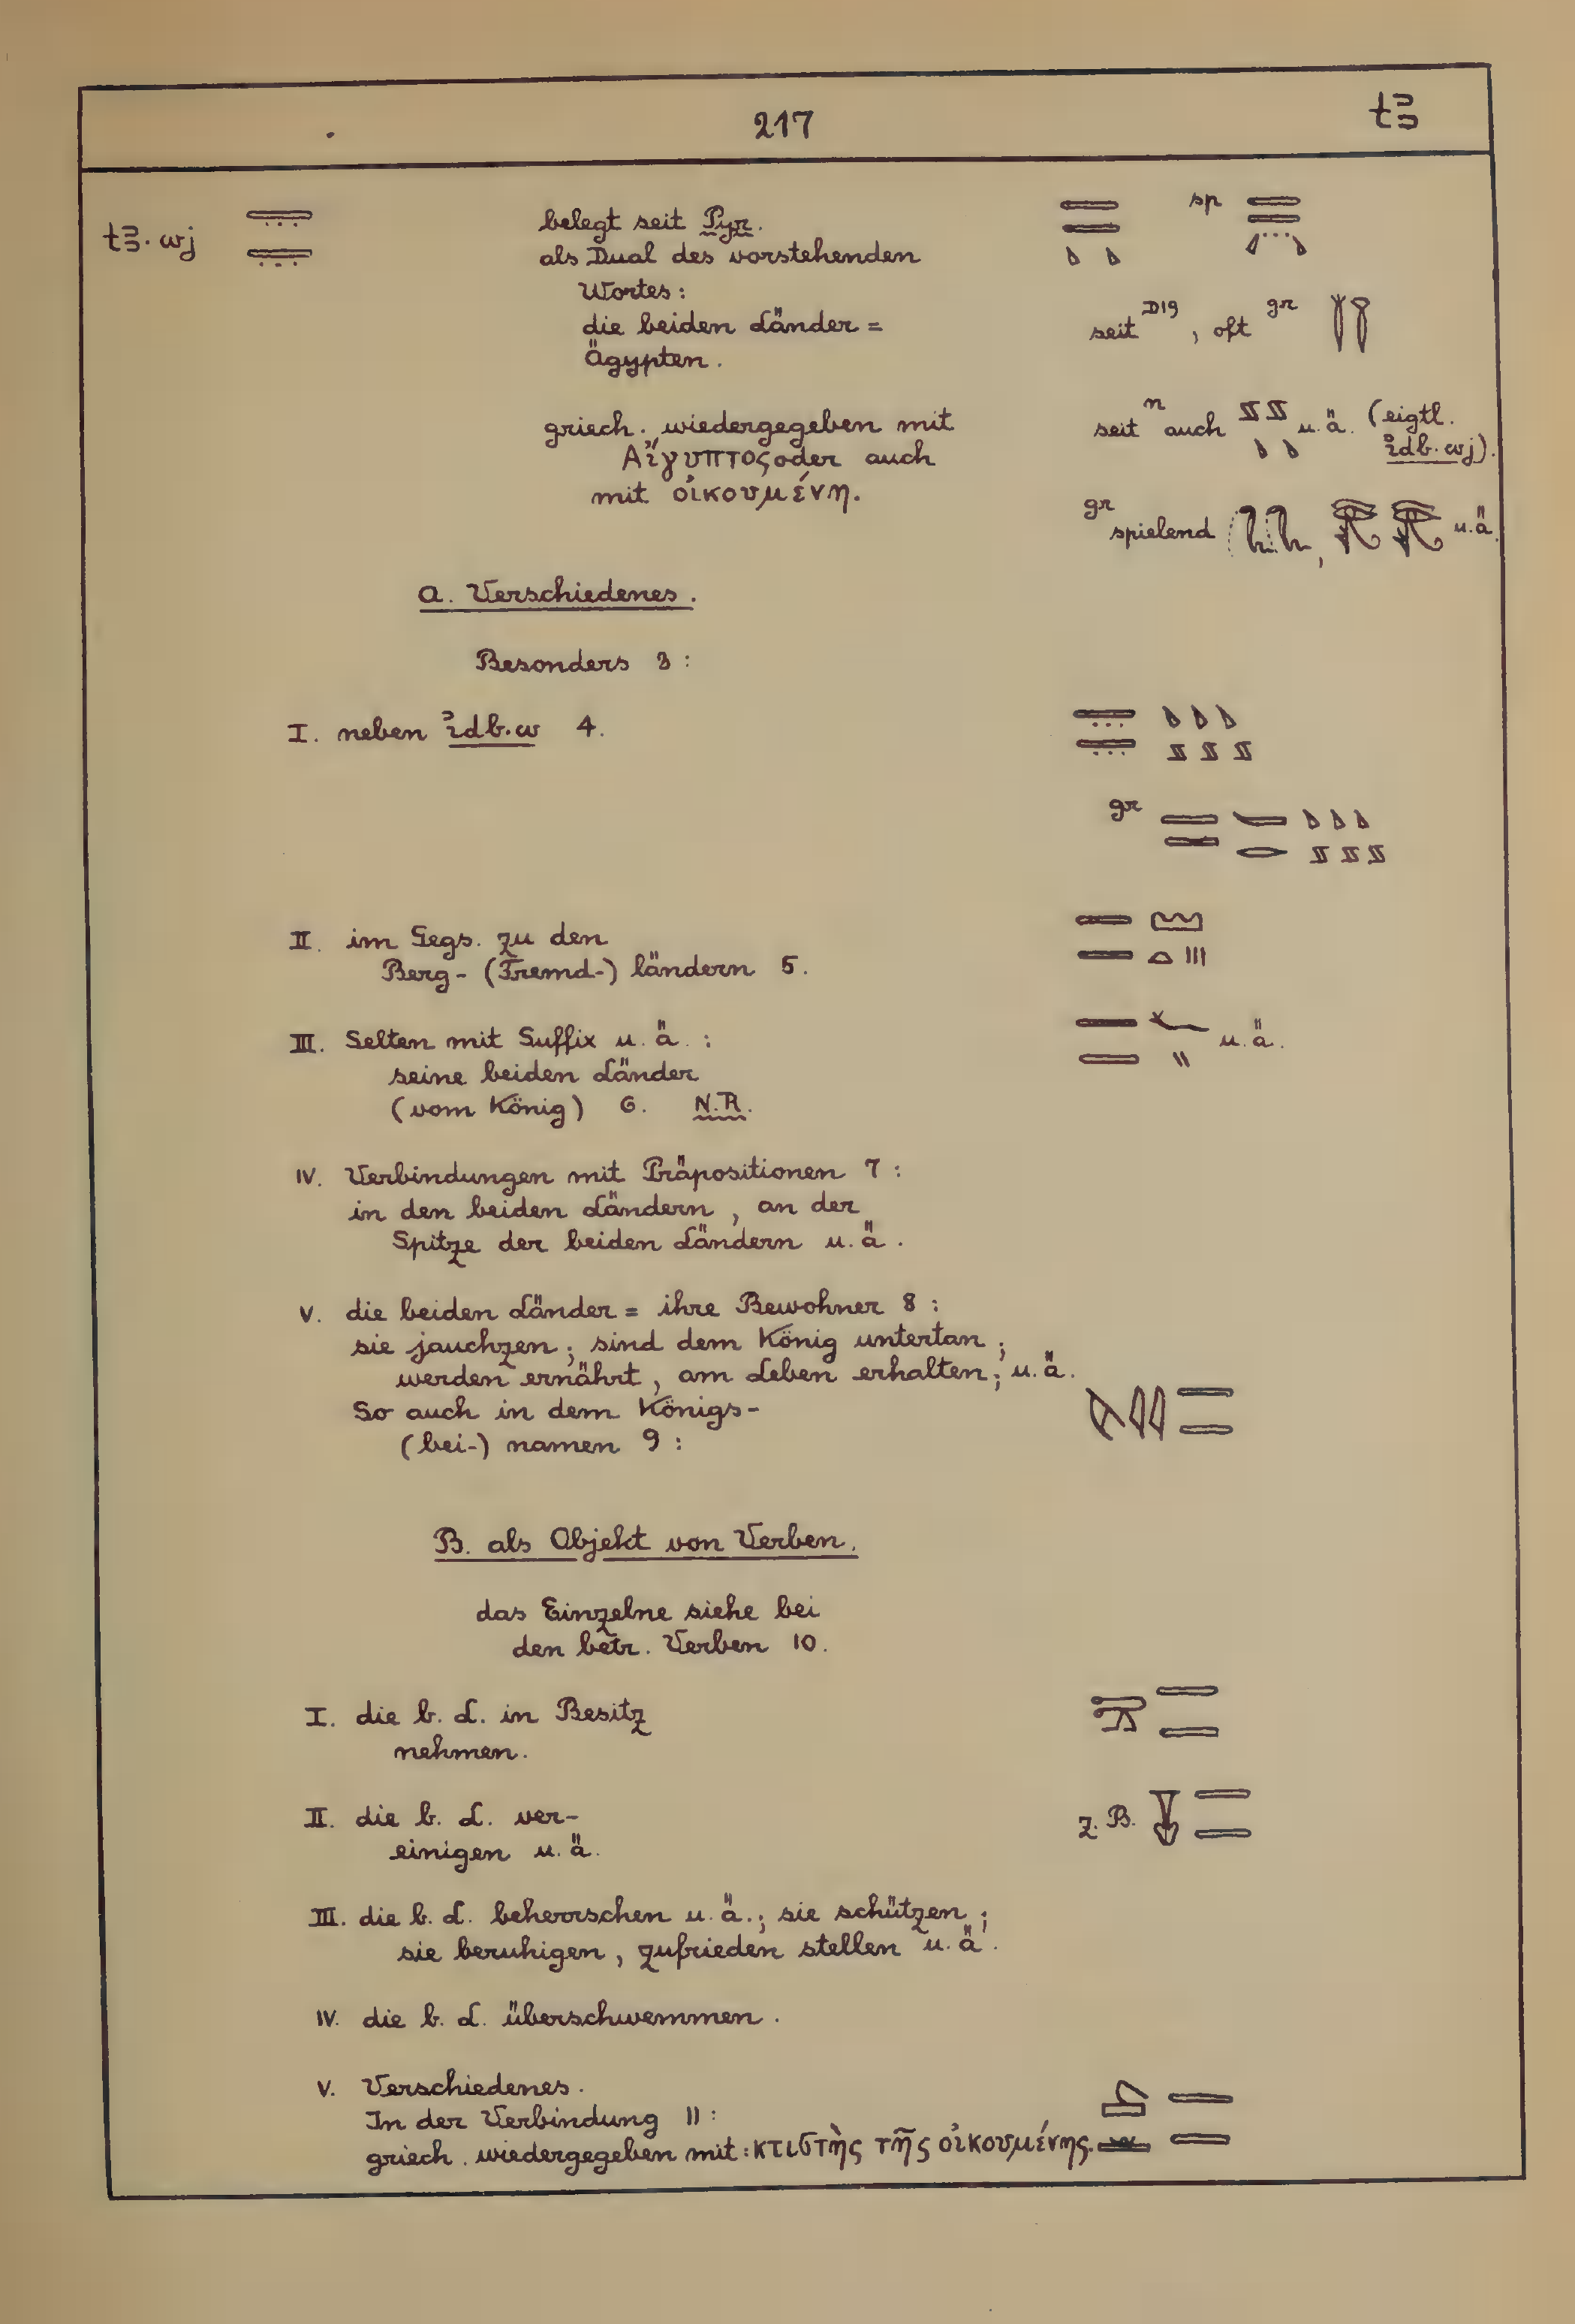 217
tꜣ
tꜣ.wj
belegt seit Pyr.
als Dual des vorstehenden
Wortes:
die beiden Länder =
Ägypten.
griech. wiedergegeben mit
Αἴγυπτος oder auch
mit οἰκουμένη.
sp
seit D19, oft gr
seit n auch 𓈅𓈅 u.ä. (eigtl.
idb.wj).
gr spielend 𓆓𓆓, 𓂀𓂀 u.ä.
A. Verschiedenes.
Besonders 3:
I. neben idb.w 4.
gr
II. im Gegs. zu den
Berg- (Fremd-) ländern 5.
III. Selten mit Suffix u.ä.: u.ä.
seine beiden Länder
(vom König) 6. N.R.
IV. Verbindungen mit Präpositionen 7:
in den beiden Ländern, an der
Spitze der beiden Ländern u.ä.
V. die beiden Länder = ihre Bewohner 8:
sie jauchzen; sind dem König untertan;
werden ernährt, am Leben erhalten; u.ä.
So auch in dem Königs-
(bei-) namen 9: 𓌸𓇋𓇋𓇾𓇾
B. als Objekt von Verben.
das Einzelne siehe bei
den betr. Verben 10.
I. die b. L. in Besitz
nehmen.
II. die b. L. ver- z.B. 𓇾𓇾
einigen u.ä.
III. die b. L. beherrschen u.ä.; sie schützen;
sie beruhigen, zufrieden stellen u.ä.
IV. die b. L. überschwemmen.
V. Verschiedenes.
In der Verbindung 11:
griech. wiedergegeben mit: κτιστὴς τῆς οἰκουμένης.